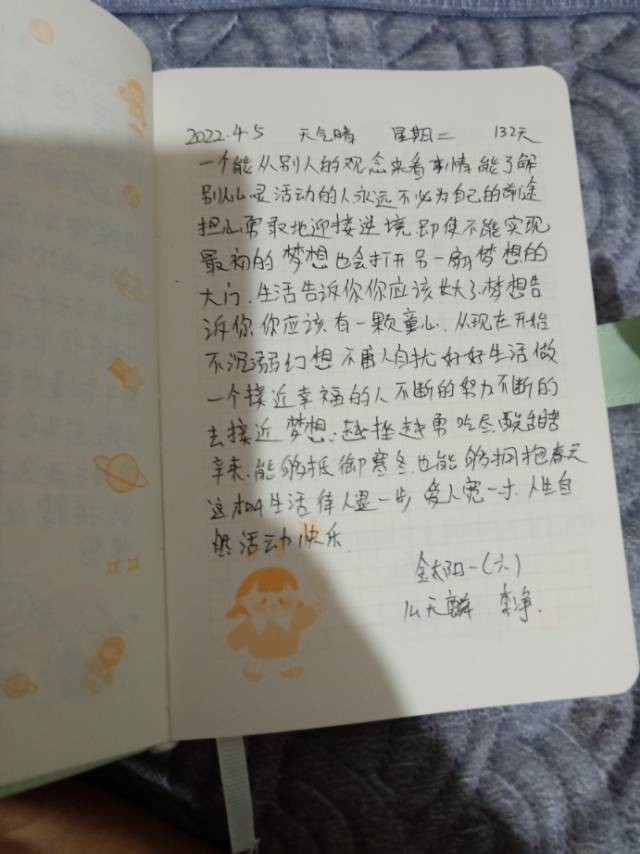 2022.4.5 天气晴 星期二 132天
一个能从别人的观念来看事情能了解
别人心灵活动的人永远不必为自己的前途
担心勇敢地迎接逆境.即使不能实现
最初的梦想也会打开另一扇梦想的
大门.生活告诉你你应该长大了.梦想告
诉你.你应该有一颗童心.从现在开始
不沉溺幻想 不庸人自扰 好好生活做
一个接近幸福的人 不断的努力不断的
去接近梦想.越挫越勇吃尽酸甜苦
辣.能够抵御寒冬.也能够拥抱春天
这才叫生活 待人退一步 爱人宽一寸.人生自
然活动快乐
金太阳一(六)
天麟 李净.